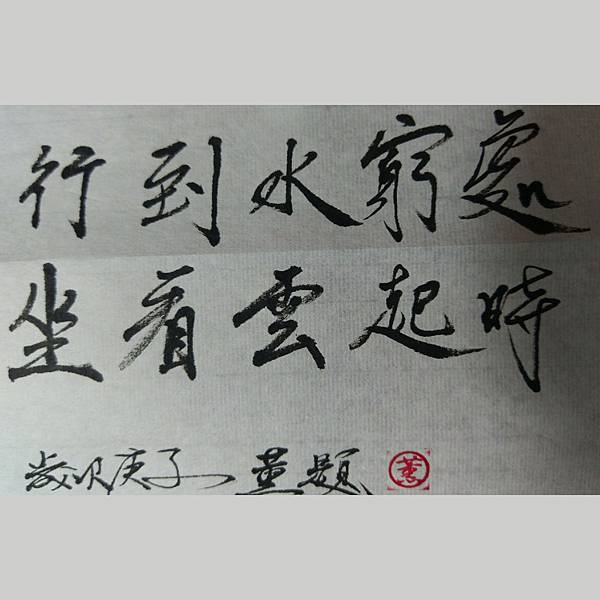 行到水窮處
坐看雲起時
歲次庚子 董題